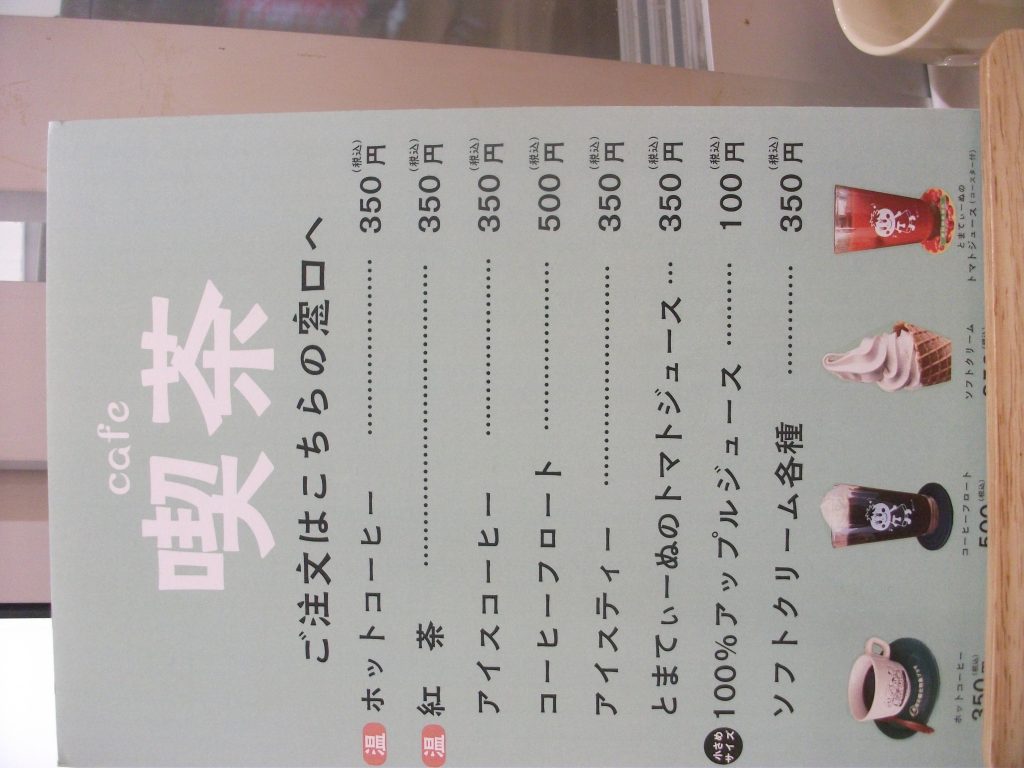 cafe
喫茶
ご注文はこちらの窓口へ
温 ホットコーヒー ……………… 350円(税込)
温 紅 茶 ……………………… 350円(税込)
アイスコーヒー ……………… 350円(税込)
コーヒーフロート ……………… 500円(税込)
アイスティー …………………… 350円(税込)
とまてぃーぬのトマトジュース … 350円(税込)
小さめサイズ 100%アップルジュース ……… 100円(税込)
ソフトクリーム各種 ………… 350円(税込)
ホットコーヒー
350円(税込)
コーヒーフロート
500(税込)
ソフトクリーム
とまてぃーぬの
トマトジュース(コースター付)